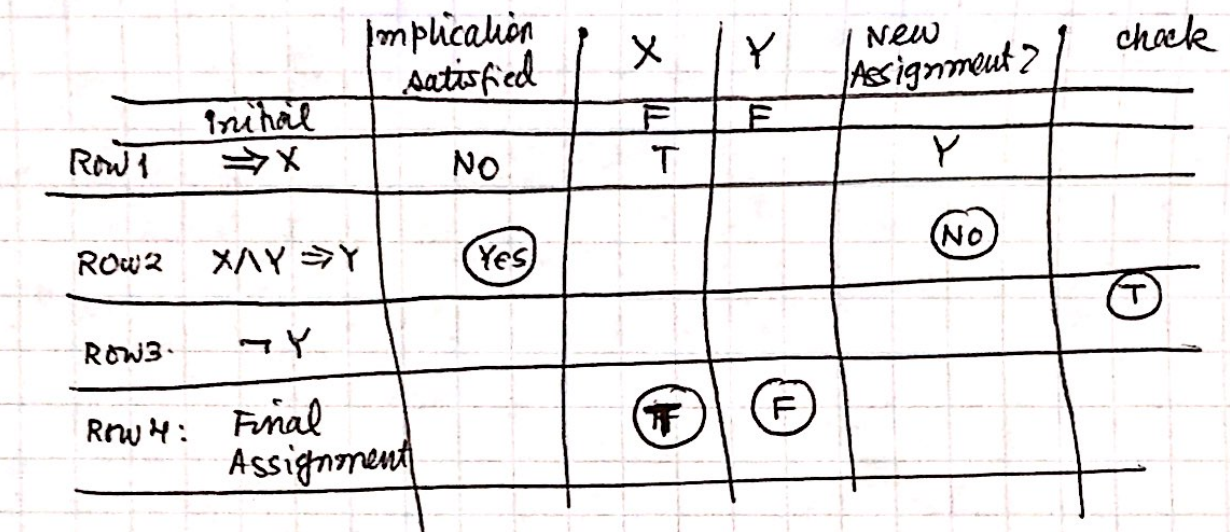 Implication satisfied X Y New Assignment? check
Initial F F
Row1 ⇒ X NO T Y
Row2 X∧Y ⇒ Y Yes NO
Row3. ¬ Y T
Row4: Final Assignment F